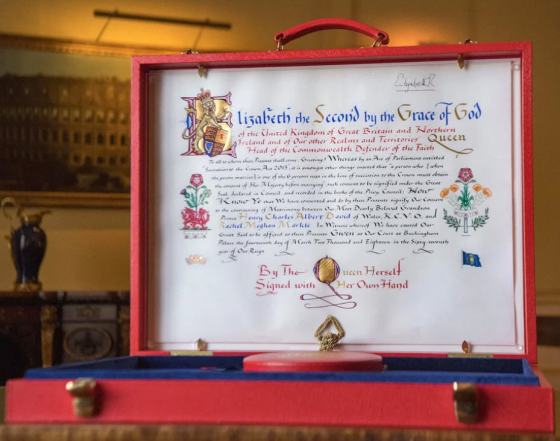 Elizabeth R
Elizabeth the Second by the Grace of God
of the United Kingdom of Great Britain and Northern
Ireland and of Our other Realms and Territories Queen
Head of the Commonwealth Defender of the Faith
To all to whom these Presents shall come, Greeting! Whereas by an Act of Parliament entitled
Succession to the Crown Act 2013 it is amongst other things enacted that "a person who (when
the person marries) is one of the 6 persons next in the line of succession to the Crown must obtain
the consent of Her Majesty before marrying" such consent to be signified under the Great
Seal, declared in Council, and recorded in the books of the Privy Council; Now
Know Ye that We have consented and do by these Presents signify Our Consent
to the contracting of Matrimony between Our Most Dearly Beloved Grandson
Prince Henry Charles Albert David of Wales, K.C.V.O., and
Rachel Meghan Markle. In Witness whereof We have caused Our
Great Seal to be affixed to these Presents Given at Our Court at Buckingham
Palace the fourteenth day of March Two Thousand and Eighteen in the Sixty-seventh
year of Our Reign
By The Queen Herself
Signed with Her Own Hand